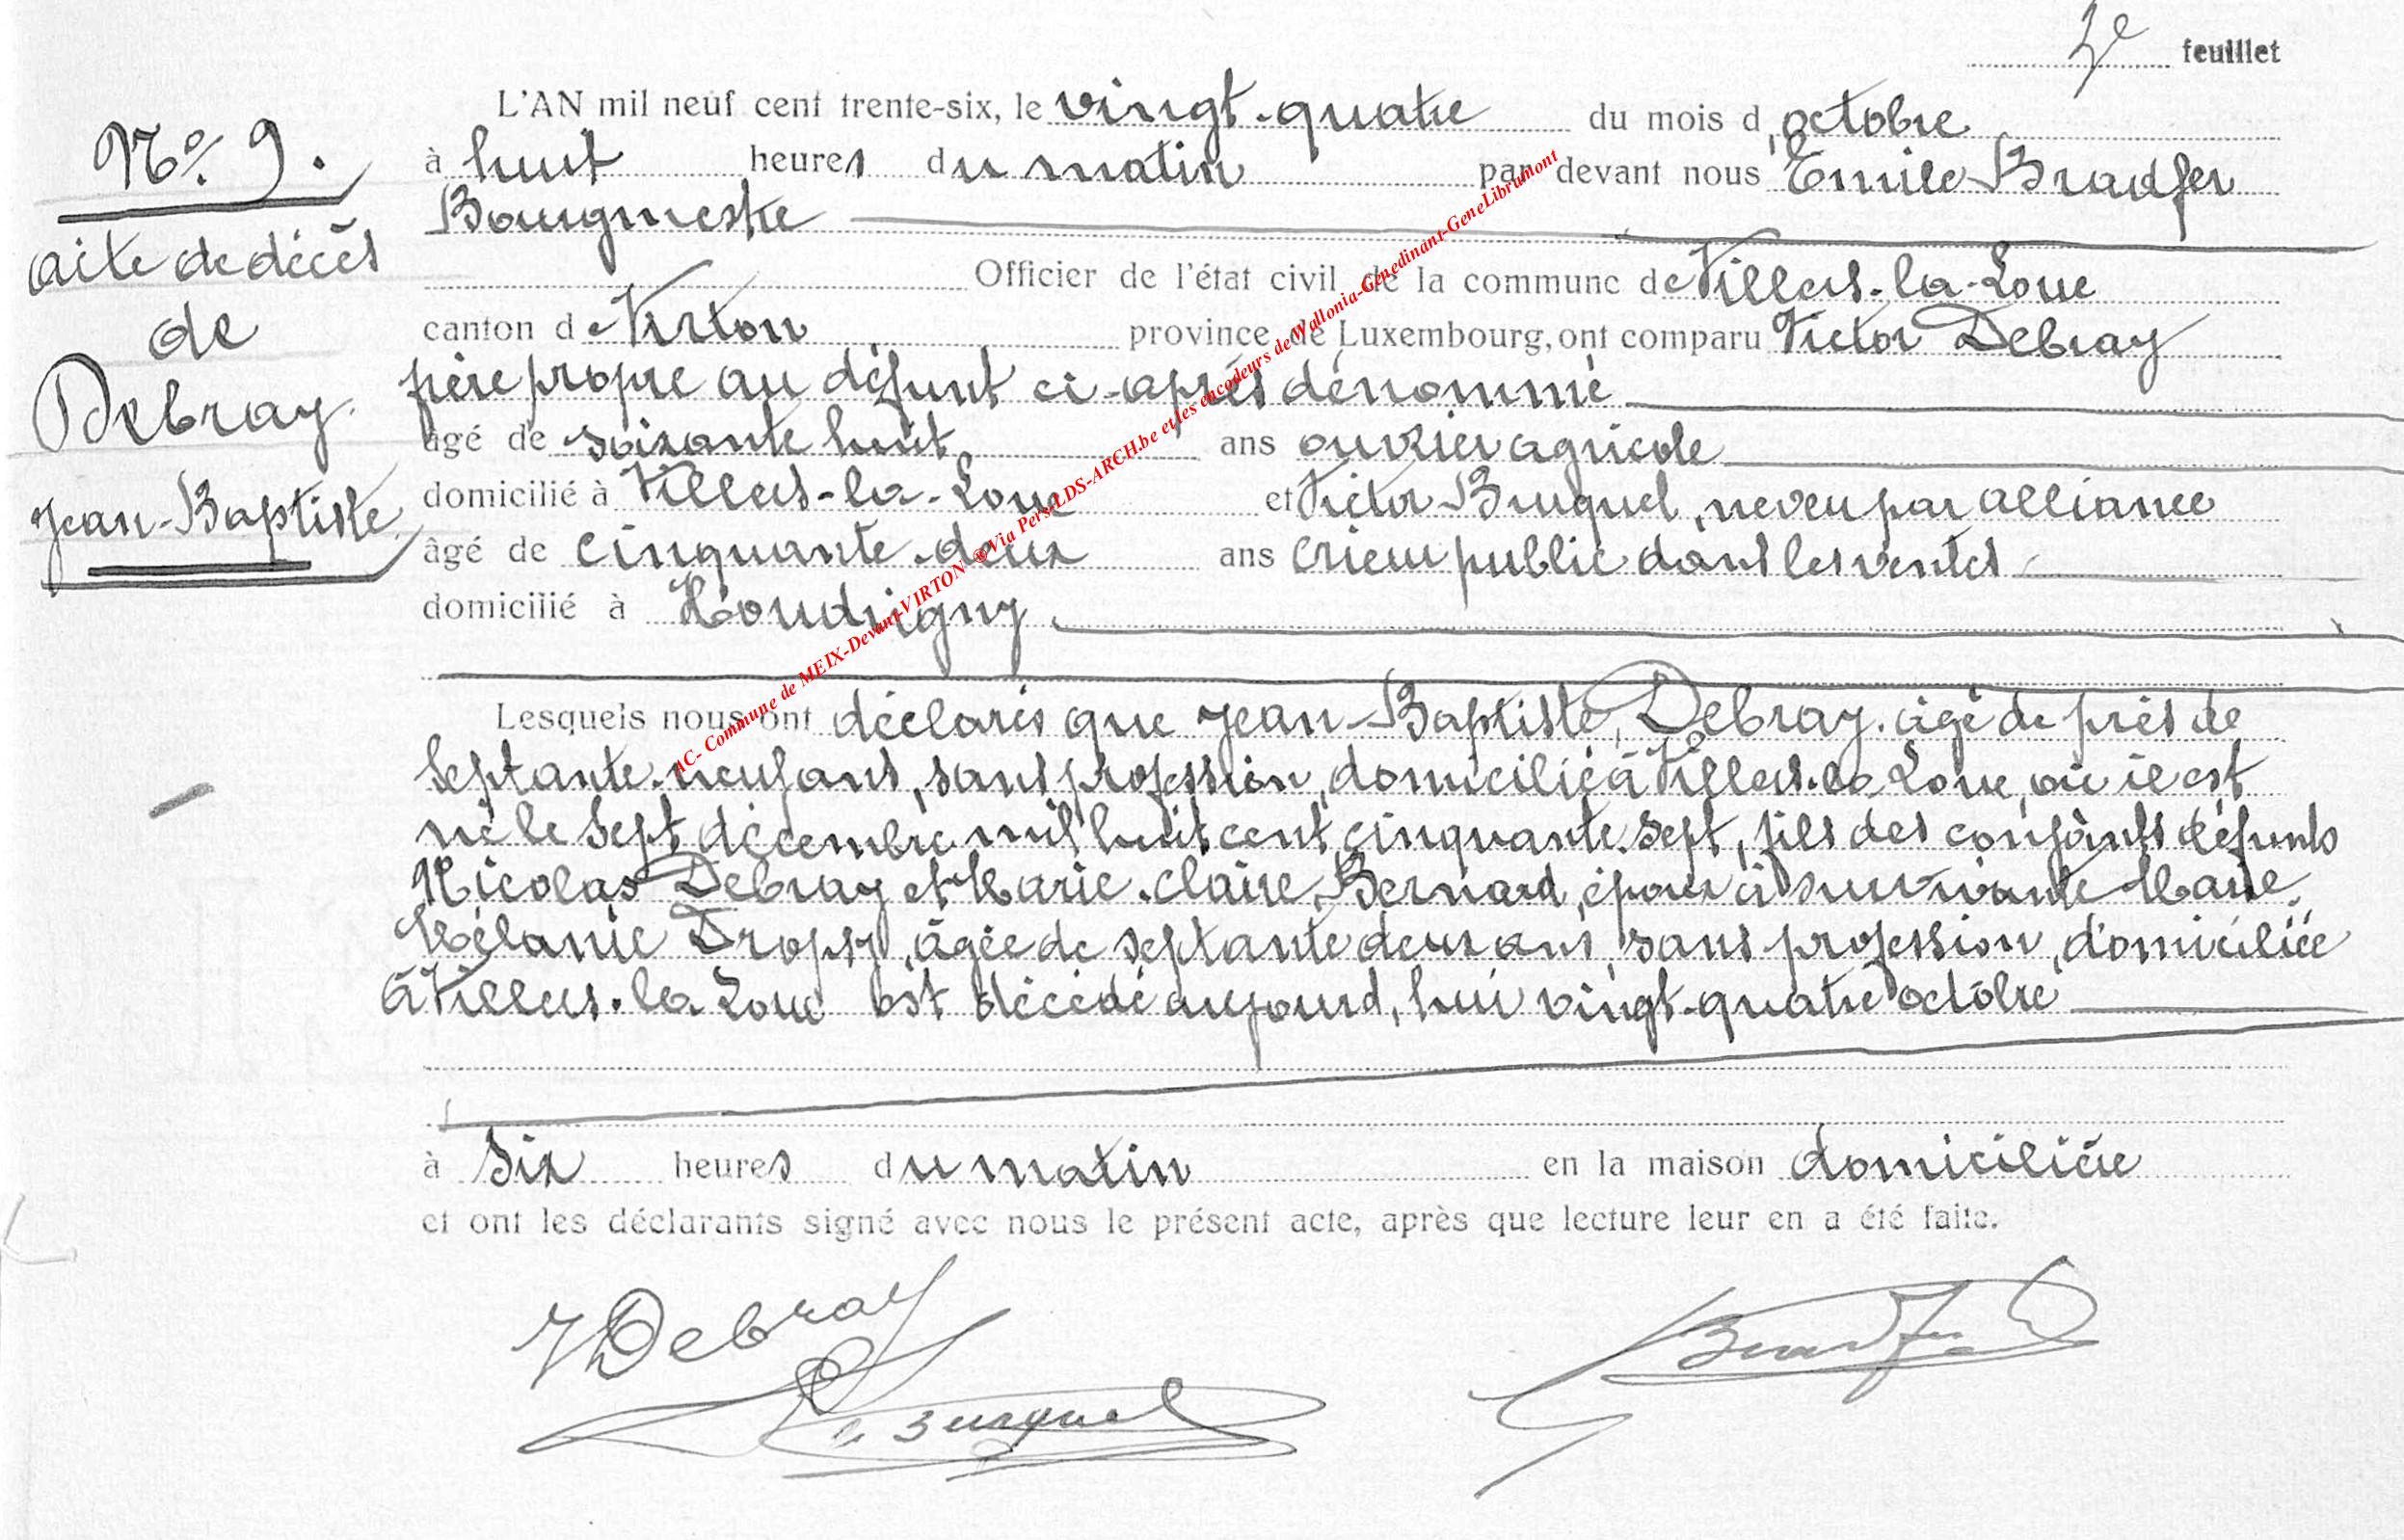 5e feuillet
L'AN mil neuf cent trente-six, le vingt-quatre du mois d'octobre
à huit heures du matin par devant nous Emile Bradfer
Bourgmestre
Officier de l'état civil de la commune de Villers-la-Loue
canton de Virton province de Luxembourg, ont comparu Victor Debray
frère propre au défunt ci-après dénommé
âgé de soixante huit ans ouvrier agricole
domicilié à Villers-la-Loue et Victor Burquel, neveu par alliance
âgé de cinquante-deux ans crieur public dans les ventes
domicilié à Houdrigny.
Lesquels nous ont déclarés que Jean-Baptiste Debray, âgé de près de
septante-neuf ans, sans profession, domicilié à Villers-la-Loue, où il est
né le sept décembre mil huit cent cinquante-sept, fils des conjoints défunts
Nicolas Debray et Marie-Claire Bernard, époux à survivante Marie
Mélanie Dropsy, âgée de septante deux ans, sans profession, domiciliée
à Villers-la-Loue est décédé aujourd'hui vingt-quatre octobre
à six heures du matin en la maison domicilière
et ont les déclarants signé avec nous le présent acte, après que lecture leur en a été faite.
V Debray
Burquel
Bradfer
No. 9.
acte de décès
de
Debray
Jean-Baptiste
AC- Commune de MEIX-Devant-VIRTON ®Via Pers-LDS-ARCH.be et les encodeurs de Wallonia-Genedinant-GeneLibramont